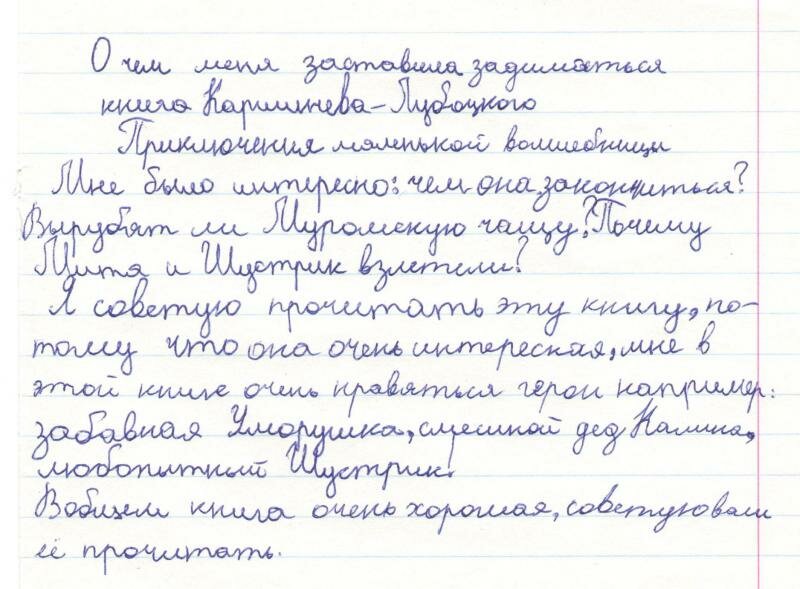 О чем меня заставила задуматься
книга Каришнева-Лубоцкого
Приключения маленькой волшебницы
Мне было интересно: чем она закончиться?
Вырубят ли Муромскую чащу? Почему
Митя и Шустрик взлетели?
Я советую прочитать эту книгу, по-
тому что она очень интересная, мне в
этой книге очень нравяться герои например:
забавная Уморушка, смешной дед Калина,
любопытный Шустрик.
Вобщем книга очень хорошая, советую вам
её прочитать.